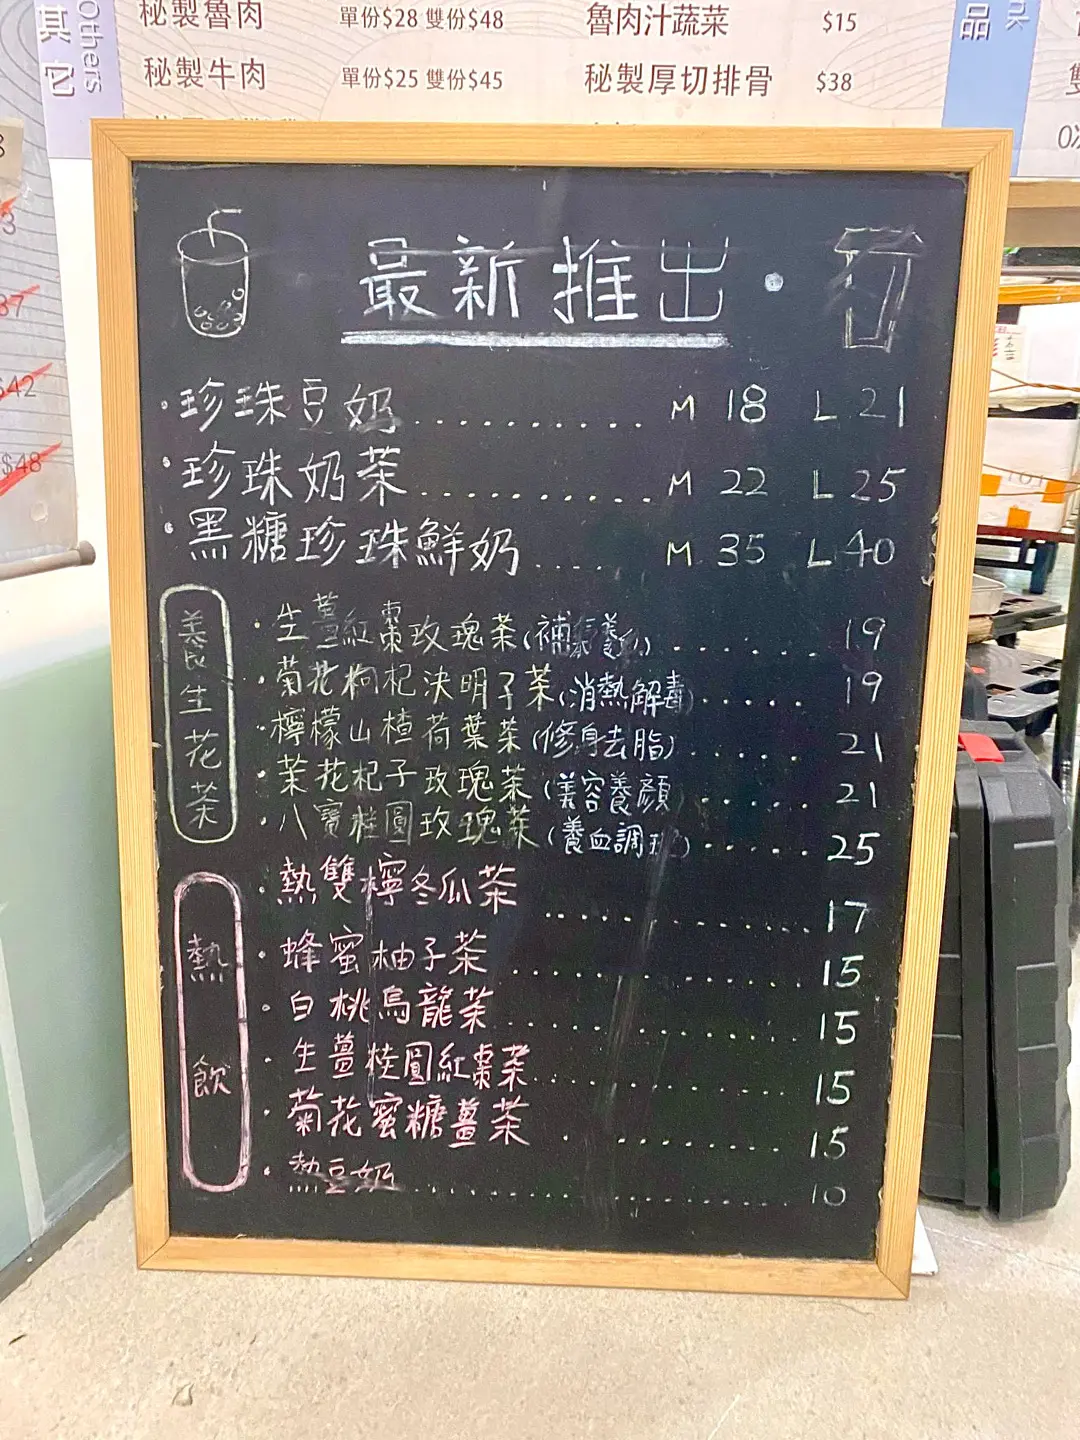 其它
Others
秘製魯肉 單份$28 雙份$48
魯肉汁蔬菜 $15
品
秘製牛肉 單份$25 雙份$45
秘製厚切排骨 $38
最新推出
·珍珠豆奶.......... M 18 L 21
·珍珠奶茶.......... M 22 L 25
·黑糖珍珠鮮奶.... M 35 L 40
養生花茶
·生薑紅棗玫瑰茶(補氣養血)...... 19
·菊花枸杞決明子茶(消熱解毒)..... 19
·檸檬山楂荷葉茶(修身去脂)...... 21
·茉花杞子玫瑰茶(美容養顏)...... 21
·八寶桂圓玫瑰茶(養血調理)..... 25
熱飲
·熱雙檸冬瓜茶.......... 17
·蜂蜜柚子茶.......... 15
·白桃烏龍茶.......... 15
·生薑桂圓紅棗茶.......... 15
·菊花蜜糖薑茶.......... 15
·熱豆奶.......... 10
$48